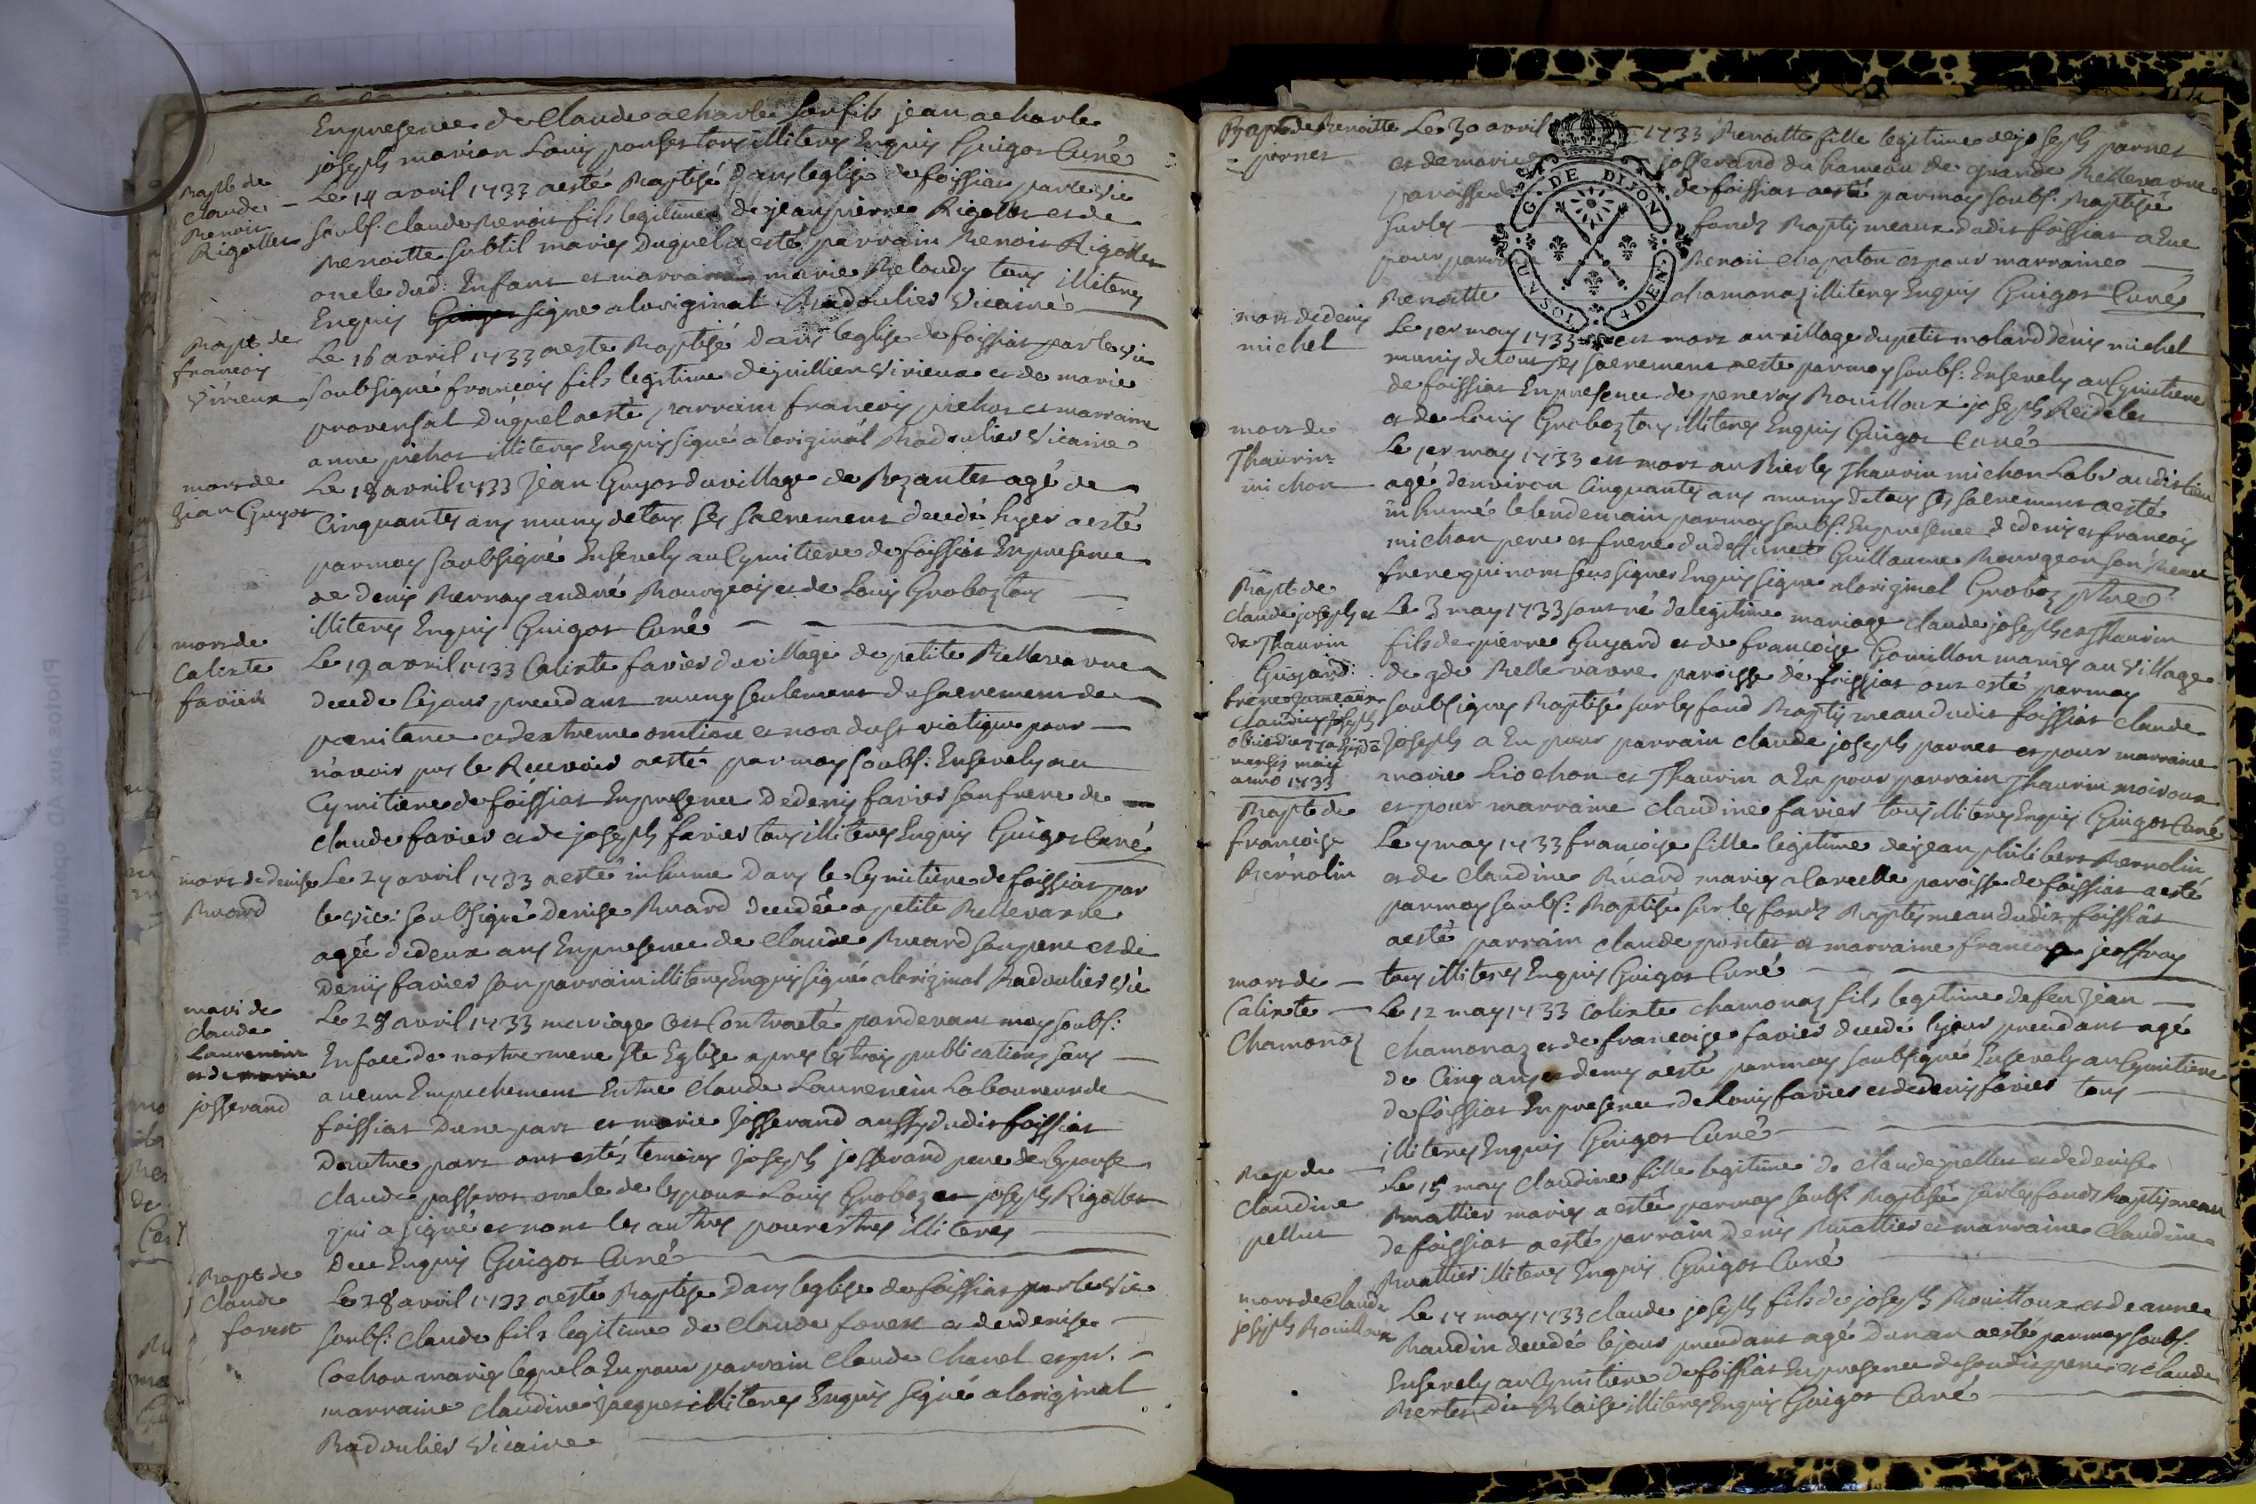 En presence de Claude acharle son fils jean acharle
joseph marion Louis ponset tous illiteres Enquis Guigot Curé
Bapt de
Claude
Benoit
Rigollet
Le 14 avril 1733 a esté Baptisé dans leglise de foissiat par le vic
soubs: Claude Benoit fils legitime de jean pierre Rigollet et de
Benoitte subtil mariés duquel a esté parrain Benoit Rigollet
oncle dud: Enfant et marraine marie Beloudy tous illiteres
Enquis signe a loriginal Badoulier Vicaire
Bapt de
francois
Virieux
Le 16 avril 1733 a esté Baptisé dans leglise de foissiat par le vic
soubsigné francois fils legitime de juillien Virieux et de marie
provensal duquel a esté parrain francois pichot et marraine
anne pichot illiteres Enquis signé a loriginal Badoulier Vicaire
mort de
jean Guyot
Le 18 avril 1733 jean Guyot du village de Bezantes agé de
Cinquantes ans muny de tous ses sacrements decedé hyer a esté
par moy soubsigné Ensevely au Cymitiere de foissiat En presence
de denis Bernoy andré Bourgeois et de Louis Groboz tous
illiteres Enquis Guigot Curé
mort de
Calixte
favier
Le 19 avril 1733 Calixte favier du village de petite Bellevavre
decede le jour precedant muny seulement du sacrement de
pœnitence et dextreme onction et non du st viatique pour
navoir pus le Recevoir a esté par moy soubs: Ensevely au
Cymitiere de foissiat En presence de denis favier son frere de
claude favier et de joseph favier tous illiteres Enquis Guigot Curé
mort de denise
Buard
Le 24 avril 1733 a esté inhumé dans le Cymitiere de foissiat par
le vic: soubsigné denise Buard decedée a petite Bellevavre
agée de deux ans En presence de Claude Buard son pere et de
denis favier son parrain illiteres Enquis signé a loriginal Badoulier vic
mari de
claude
Laurencin
et de marie
josserand
Le 28 avril 1733 mariage est Contracté pardevant moy soubs:
En face de nostre mere ste Eglise apres les trois publications sans
aucun Empechement Entre Claude Laurencin Laboureur de
foissiat dune part et marie josserand aussy dudit foissiat
dautre part ont estés temoins joseph josserand pere de lepouse
Claude passerot oncle de lepoux Louis Groboz et joseph Rigollet
qui a signé et non les autres pour estres illiteres
Duc Enquis Guigot Curé
Bapt de
claude
forest
Le 28 avril 1733 a esté Baptise dans leglise de foissiat par le vic
soubs: Claude fils legitime de Claude forest et de denise
Cochon mariés lequel a Eu pour parrain Claude Chanel et pr.
marraine Claudine jacquet illiteres Enquis signé a loriginal
Badoulier Vicaire
Bapt de Benoitte
pornet
G. DE DIJON
UN SOL
4 DEN.
Le 30 avril 1733 Benoitte fille legitime de joseph pornet
et de marie josserand du hameau de grande Bellevavre
paroisse de foissiat a esté par moy soubs: Baptisée
sur les fonds Baptismeaux dudit foissiat a Eue
pour parrain Benoit Chapaton et pour marraine
Benoitte chamonaz illiteres Enquis Guigot Curé
mort de denis
michel
Le 1er may 1733 est mort au village du petit molard denis michel
munis de tous ses sacrements a esté par moy soubs: Ensevely au Cymitiere
de foissiat En presence de Bouilloux joseph Reidelet
et de Louis Groboz tous illiteres Enquis Guigot Curé
mort de
Thaurin
michon
Le 1er may 1733 est mort au Thaurin michon Labr audit lieu
agé denviron Cinquantes ans muny de tous ses sacrements a esté
inhumé le lendemain par moy soubs: En presence de denis et francois
michon pere et frere du deffunct Guillaume Bourgeon son
frere qui nont sceus signer Enquis signe a loriginal Groboz ptre
Bapt de
Claude joseph et
de Thaurin
Guyard
freres jumeaux
Claudius joseph
mensis maii
anno 1733
Le 3 may 1733 sont né de legitime mariage Claude joseph et Thaurin
fils de pierre Guyard et de francoise Gomillon mariés au village
de gde Bellevavre paroisse de foissiat ont esté par moy
soubsignes Baptisé sur les fond Baptismeau dudit foissiat Claude
joseph a Eu pour parrain Claude joseph pornet et pour marraine
marie Liochon et Thaurin a Eu pour parrain Thaurin moiroux
et pour marraine Claudine favier tous illiteres Enquis Guigot Curé
Bapt de
francoise
Bernolin
Le 4 may 1733 francoise fille legitime de jean philibert Bernolin
et de Claudine Buard mariés paroisse de foissiat a esté
par moy soubs: Baptisée sur les fonds Baptismeau dudit foissiat
a esté parrain Claude et marraine francoise jeoffray
tous illiteres Enquis Guigot Curé
mort de
Calixte
Chamonaz
Le 12 may 1733 Calixte Chamonaz fils legitime de feu jean
Chamonaz et de francoise favier decede le jour precedant agé
de Cinq ans et demy a esté par moy soubsigné Ensevely au Cymitiere
de foissiat En presence de Louis favier et de denis favier tous
illiteres Enquis Guigot Curé
Bap de
Claudine
pellus
Le 15 may Claudine fille legitime de Claude pellus et de denise
Buattier mariés a esté par moy soubs: Baptisée sur les fonds Baptismeau
de foissiat a esté parrain denis Buattier et marraine Claudine
Buattier illiteres Enquis Guigot Curé
mort de Claude
joseph Bouilloux
Le 17 may 1733 Claude joseph fils de joseph Bouilloux et de anne
Baudin decedé le jour precedant agé dun an a esté par moy soubs:
Ensevely au Cymitiere de foissiat En presence de son dit pere et Claude
Bertet dit Blaise illiteres Enquis Guigot Curé